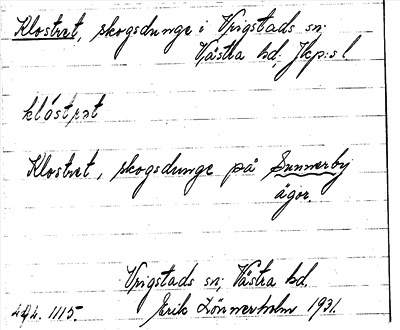 Klostret, skogsdunge i Vrigstads sn;
Västra hd, Jkp:s l.
klóstrət
Klostret, skogsdunge på Sunnerby
ägor.
Vrigstads sn; Västra hd.
Erik Lönnerholm 1931.
1115.